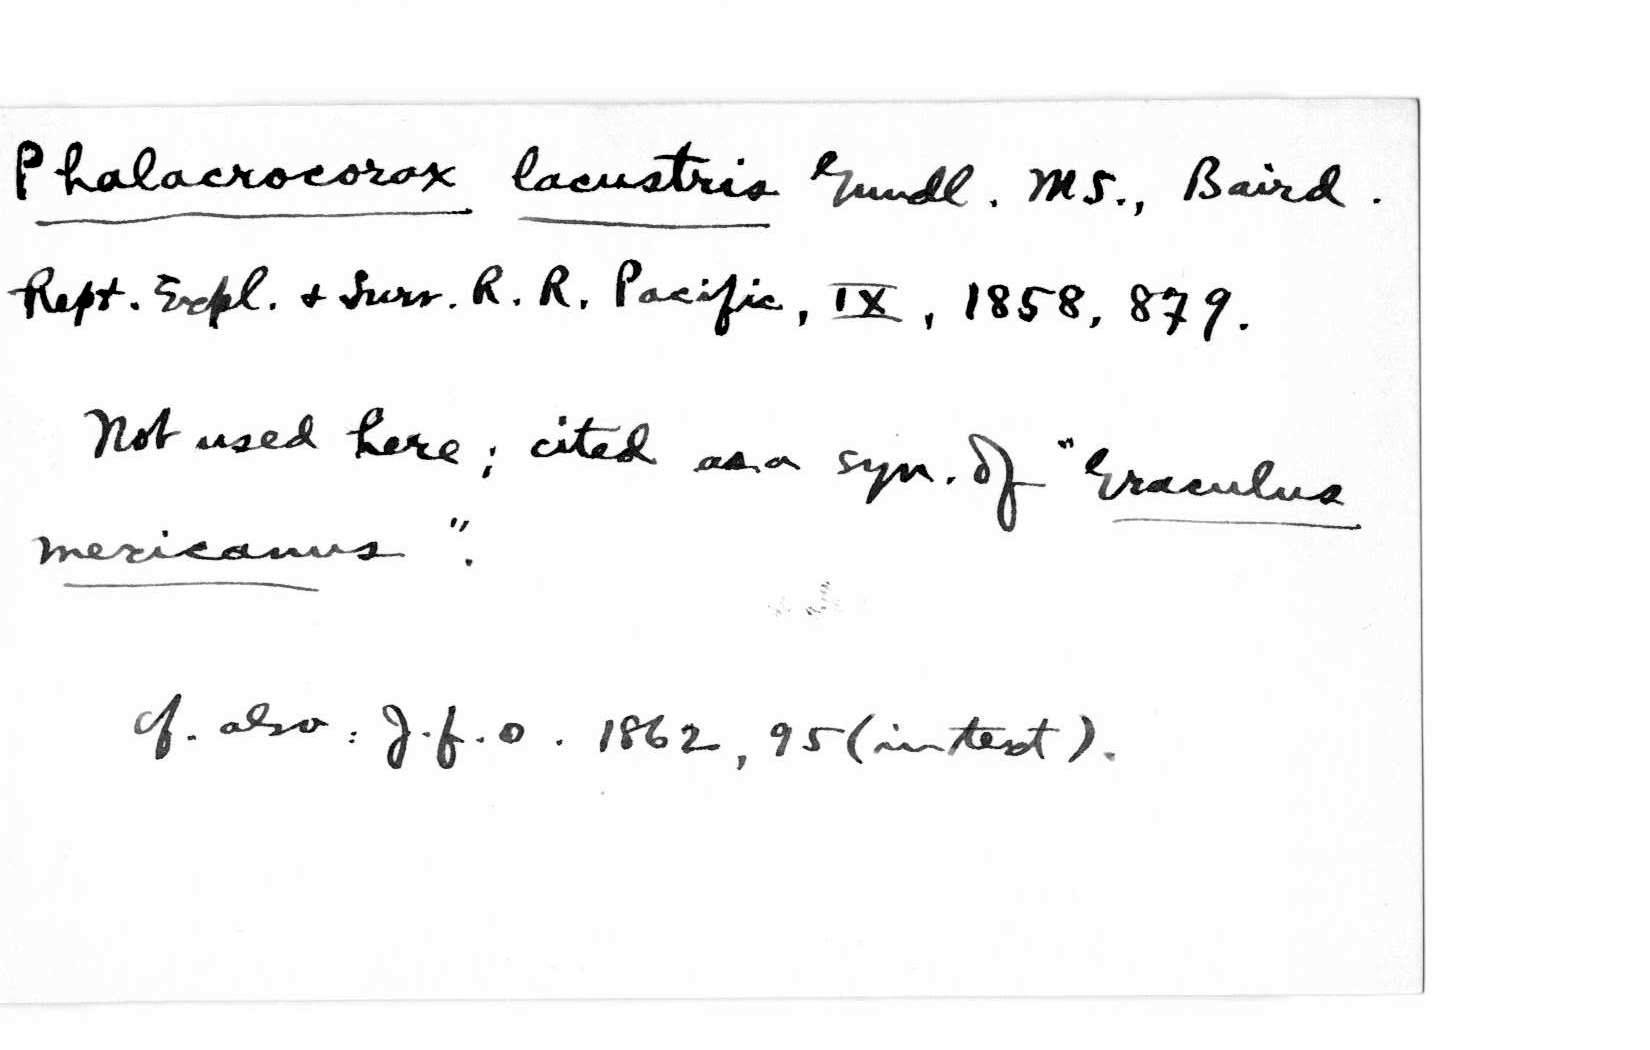 Phalacrocorax lacustris Gundl. MS., Baird.
Rept. Expl. + Surv. R. R. Pacific, IX, 1858, 879.
Not used here; cited as a syn. of "Graculus
mexicanus".
cf. also: J.f.O. 1862, 95 (in text).